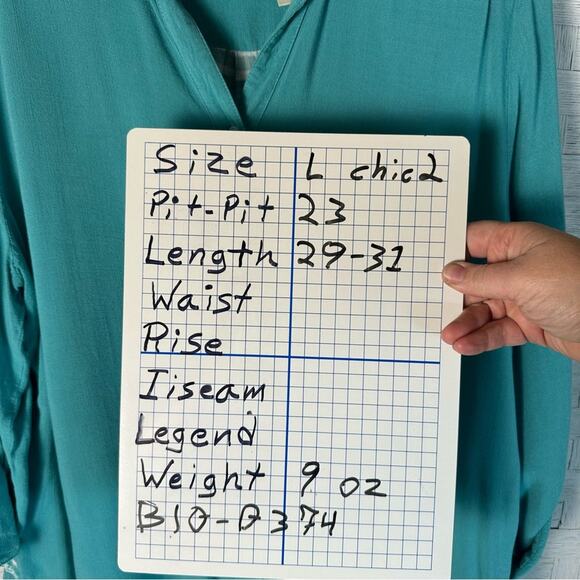 Size L chic2
Pit-Pit 23
Length 29-31
Waist
Rise
Iiseam
Legend
Weight 9 oz
B10-D374